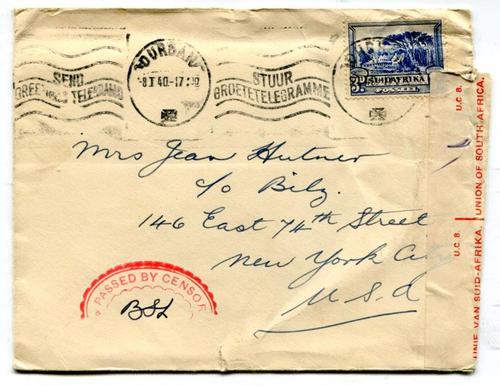 DURBAN
-8 I 40-17
SEND
GREETINGS TELEGRAMS
STUUR
GROETETELEGRAMME
SUIDAFRIKA
3D.
POSSEEL
Mrs Jean Hutner
c/o Bilz.
146 East 74th Street
New York City
U.S.A
PASSED BY CENSOR
BSL
U.C.B.
UNION OF SOUTH AFRICA.
U.C.B.
UNIE VAN SUID-AFRIKA.